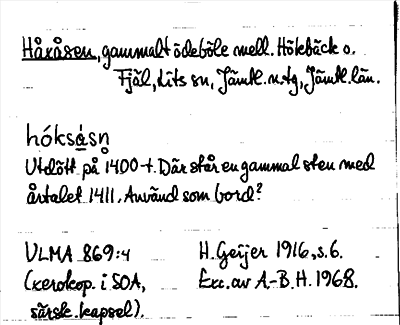 Håxåsen, gammalt ödeböle mell. Hökbäck o.
Fjäl, Lits sn, Jämtl. n. tg, Jämtl. län.
hóksåsn̥
Utdött på 1400-t. Där står en gammal sten med
årtalet 1411. Använd som bord?
ULMA 869:4
(xerokop. i SOA,
särsk. kapsel).
H. Geijer 1916, s. 6.
Exc. av A.-B. H. 1968.